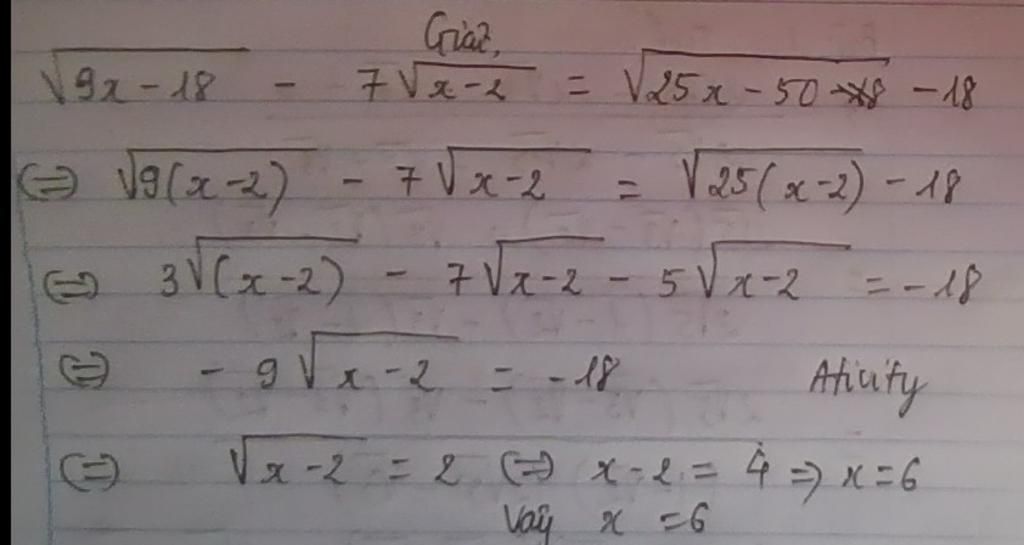 Giải
√(9x - 18) - 7√(x - 2) = √(25x - 50) - 18
(=) √(9(x-2)) - 7√(x-2) = √(25(x-2)) - 18
(=) 3√((x-2)) - 7√(x-2) - 5√(x-2) = -18
(=) - 9√(x-2) = -18 Aticity
(=) √(x-2) = 2 (=) x-2 = 4 => x=6
Vậy x = 6